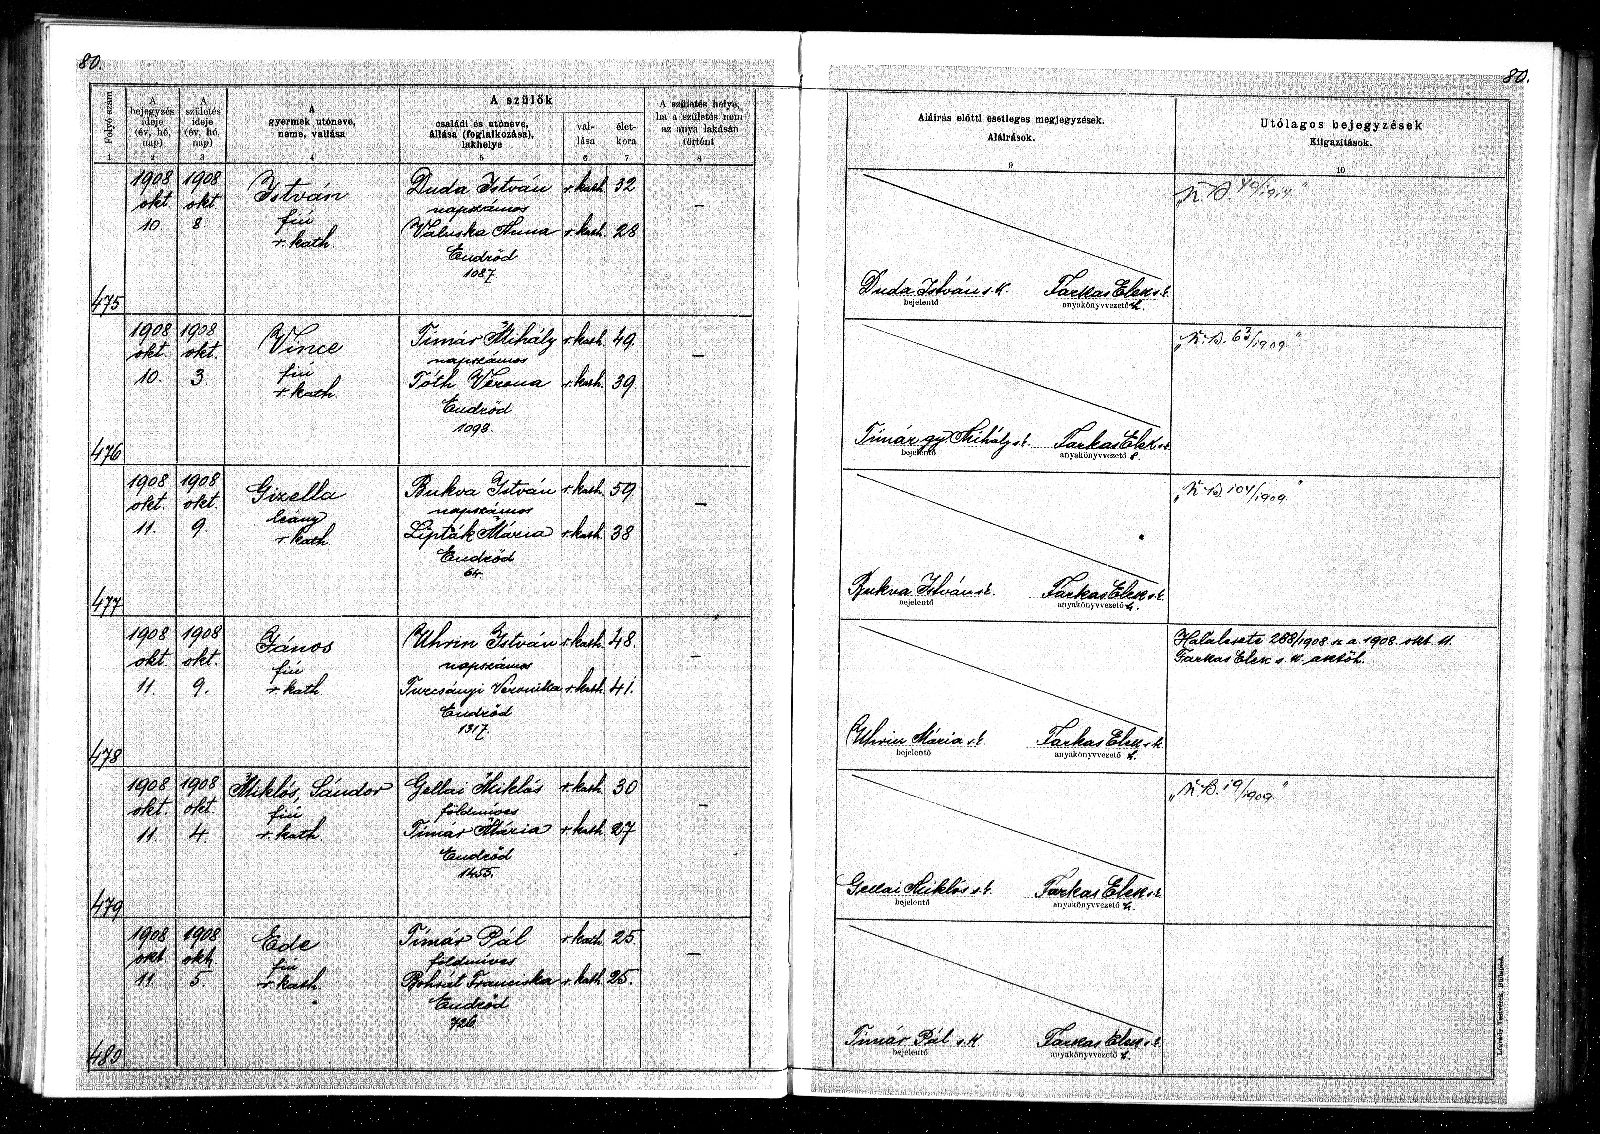 80.
80.
Folyó szám
A bejegyzés ideje (év, hó, nap)
A születés ideje (év, hó, nap)
A gyermek utóneve, neme, vallása
A szülők
családi és utóneve, állása (foglalkozása), lakhelye
vallása
életkora
A születés helye, ha a születés nem az anya lakásán történt
Aláírás előtti esetleges megjegyzések.
Aláírások.
Utólagos bejegyzések
Kiigazítások.
1 2 3 4 5 6 7 8 9 10
1908 1908 István Duda István r. kath. 32
okt. okt. fiú napszámos –
10 8 r. kath. Valuska Anna r. kath. 28
Endrőd
1087.
475
Duda István s. k. Farkas Elek s. k.
bejelentő anyakönyvvezető h.
1908 1908 Vince Tímár Mihály r. kath. 49.
okt. okt. fiú napszámos –
10. 3. r. kath. Tóth Verona r. kath. 39.
Endrőd
1098.
„K. B. 63/1909."
476
Tímár gy. Mihály s. k. Farkas Elek s. k.
bejelentő anyakönyvvezető h.
1908 1908 Gizella Bukva István r. kath. 59.
okt. okt. leány napszámos –
11. 9. r. kath. Lipták Mária r. kath. 38
Endrőd
64.
„K. B. 104/1909."
477
Bukva István s. k. Farkas Elek s. k.
bejelentő anyakönyvvezető h.
1908 1908 János Uhrin István r. kath. 48.
okt. okt. fiú napszámos –
11. 9. r. kath. Turcsányi Veronika r. kath. 41.
Endrőd
1317.
Halaleste 288/1908 sz. a. 1908. okt. 11.
Farkas Elek s. k. aktőh.
478
Uhrin Mária s. k. Farkas Elek s. k.
bejelentő anyakönyvvezető h.
1908 1908 Miklós, Sándor Gellai Miklós r. kath. 30
okt. okt. fiú földmíves –
11. 4. r. kath. Tímár Mária r. kath. 27
Endrőd
1455.
„K. B. 19/1909."
479
Gellai Miklós s. k. Farkas Elek s. k.
bejelentő anyakönyvvezető h.
1908 1908 Ede Tímár Pál r. kath. 25.
okt. okt. fiú földmíves –
11. 5. r. kath. Franciska r. kath. 25.
Endrőd
726.
480
Tímár Pál s. k. Farkas Elek s. k.
bejelentő anyakönyvvezető h.